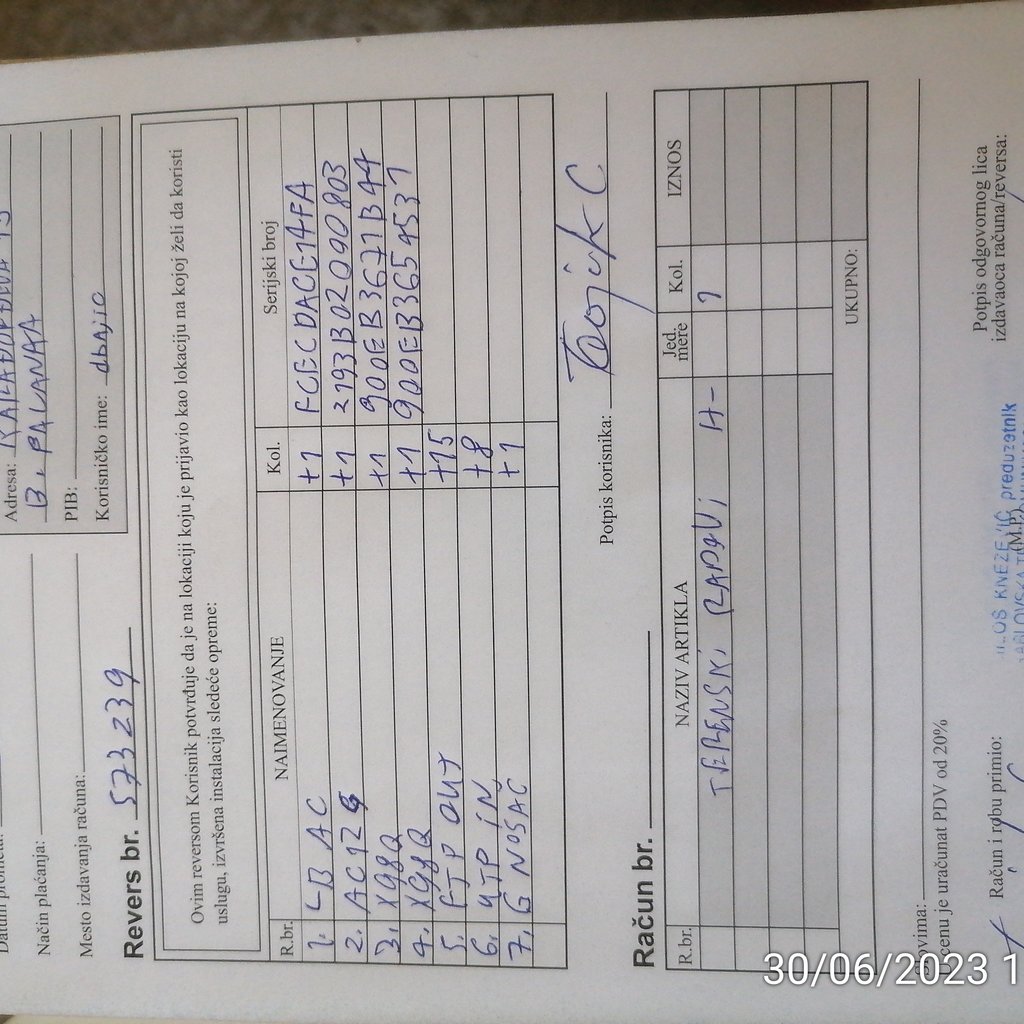 Adresa:
B. PALANKA
PIB:
Korisničko ime: dbajic
Način plaćanja:
Mesto izdavanja računa:
Revers br. 573239
Ovim reversom Korisnik potvrđuje da je na lokaciji koju je prijavio kao lokaciju na kojoj želi da koristi
uslugu, izvršena instalacija sledeće opreme:
R.br. NAIMENOVANJE Kol. Serijski broj
1. LB AC +1 FCECDACE14FA
2. AC12 +1 2193B02090803
3. X98Q +1 900EB3671B44
4. X98Q +1 900EB3654537
5. FTP OUT +15
6. UTP IN +8
7. G NOSAC +1
Potpis korisnika:
Račun br.
R.br. NAZIV ARTIKLA Jed. mere Kol. IZNOS
TERENSKI RADOVI H- 1
UKUPNO:
U cenu je uračunat PDV od 20%
Račun i robu primio:
(M.P.)
preduzetnik
Potpis odgovornog lica
izdavaoca računa/reversa:
30/06/2023 1